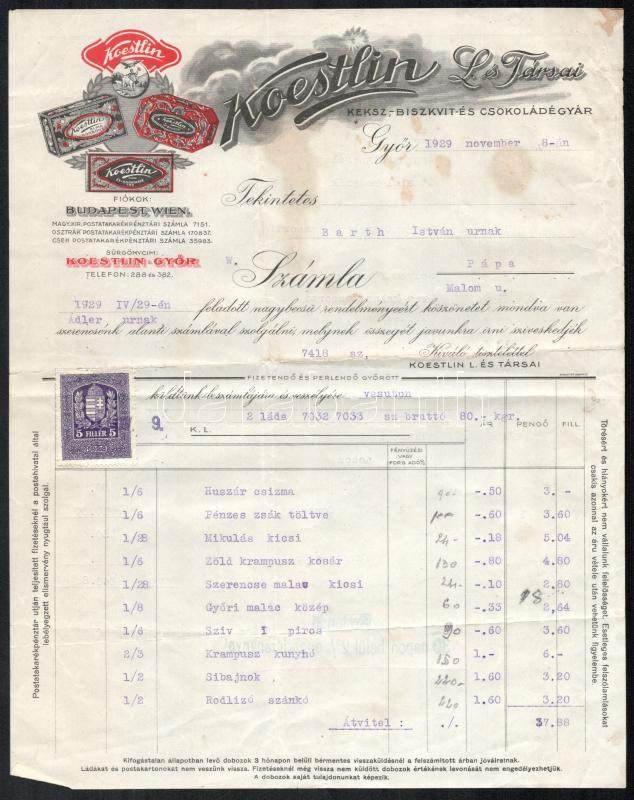 Koestlin
Koestlin L. és Társai
KEKSZ,- BISZKVIT- ÉS CSOKOLÁDÉGYÁR
Győr, 1929 november 8-án
Koestlin
FIÓKOK:
BUDAPEST, WIEN.
MAGY. KIR. POSTATAKARÉKPÉNZTÁRI SZÁMLA 7151.
OSZTRÁK POSTATAKARÉKPÉNZTÁRI SZÁMLA 170837.
CSEH POSTATAKARÉKPÉNZTÁRI SZÁMLA 35983.
SÜRGÖNYCIM:
KOESTLIN-GYŐR
TELEFON: 288 és 382.
Tekintetes
Barth István urnak
W. Számla Pápa
Malom u.
1929 IV/29-én feladott nagybecsü rendelményeért köszönetet mondva van
Adler urnak szerencsénk alanti számlával szolgálni, melynek összegét javunkra irni sziveskedjék
7418 sz, Kiváló tisztelettel
KOESTLIN L. ÉS TÁRSAI
FIZETENDŐ ÉS PERLENDŐ GYŐRÖTT
küldtünk beszámlájára és veszélyére vasuton
5 FILLÉR 5
9. K. L. 2 láda 7032 7033 sm bruttó 80.- kgr.
FÉNYÜZÉSI VAGY FORG. ADÓ% ÁR PENGŐ FILL
1/6 Huszár csizma 90.- -.50 3.-
1/6 Pénzes zsák töltve -.60 3.60
1/28 Mikulás kicsi 24.- -.18 5.04
1/6 Zöld krampusz kosár 130 -.80 4.80
1/28 Szerencse malac kicsi 24.- -.10 2.80
1/8 Győri malac közép 60.- -.33 2,64
1/6 Sziv I piros 90 -.60 3.60
2/3 Krampusz kunyhó 150 1.- 6.-
1/2 Sibajnok 220.- 1.60 3.20
1/2 Rodlizó szánkó 220 1.60 3.20
Átvitel: ./. 37.88
Postatakarékpénztár utján teljesített fizetéseknél a postahivatal által
lebélyegzett elismervény nyugtául szolgál.
Törésért és hiányokért nem vállalunk felelősséget. Esetleges felszólamlásokat
csakis azonnal az áru vétele után vehetünk figyelembe.
Kifogástalan állapotban levő dobozok 3 hónapon belüli bérmentes visszaküldésnél a felszámított árban jóváíratnak.
Ládákat és postakartonokat nem veszünk vissza. Fizetéseknél még vissza nem küldött dobozok értékének levonását nem engedélyezhetjük.
A dobozok saját tulajdonunkat képezik.